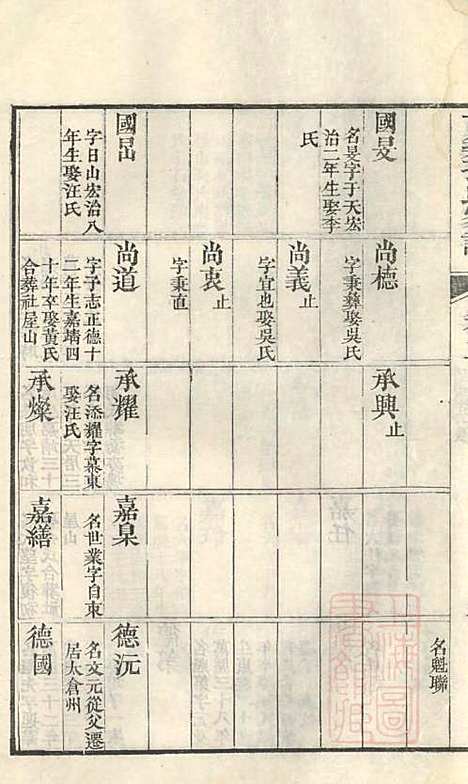 國旻
名旻字于天宏
治二年生娶李
氏
國旵
字日山宏治八
年生娶汪氏
尚德
字秉彝娶吳氏
尚義止
字宜也娶吳氏
尚衷止
字秉直
尚道
字子志正德十
二年生嘉靖四
十年卒娶黃氏
合葬社屋山
承興止
承耀
名添耀字慕東
娶汪氏
承燦
嘉臬
名世業字自東
嘉繕
名魁聯
德沅
名文元從父遷
居太倉州
德國